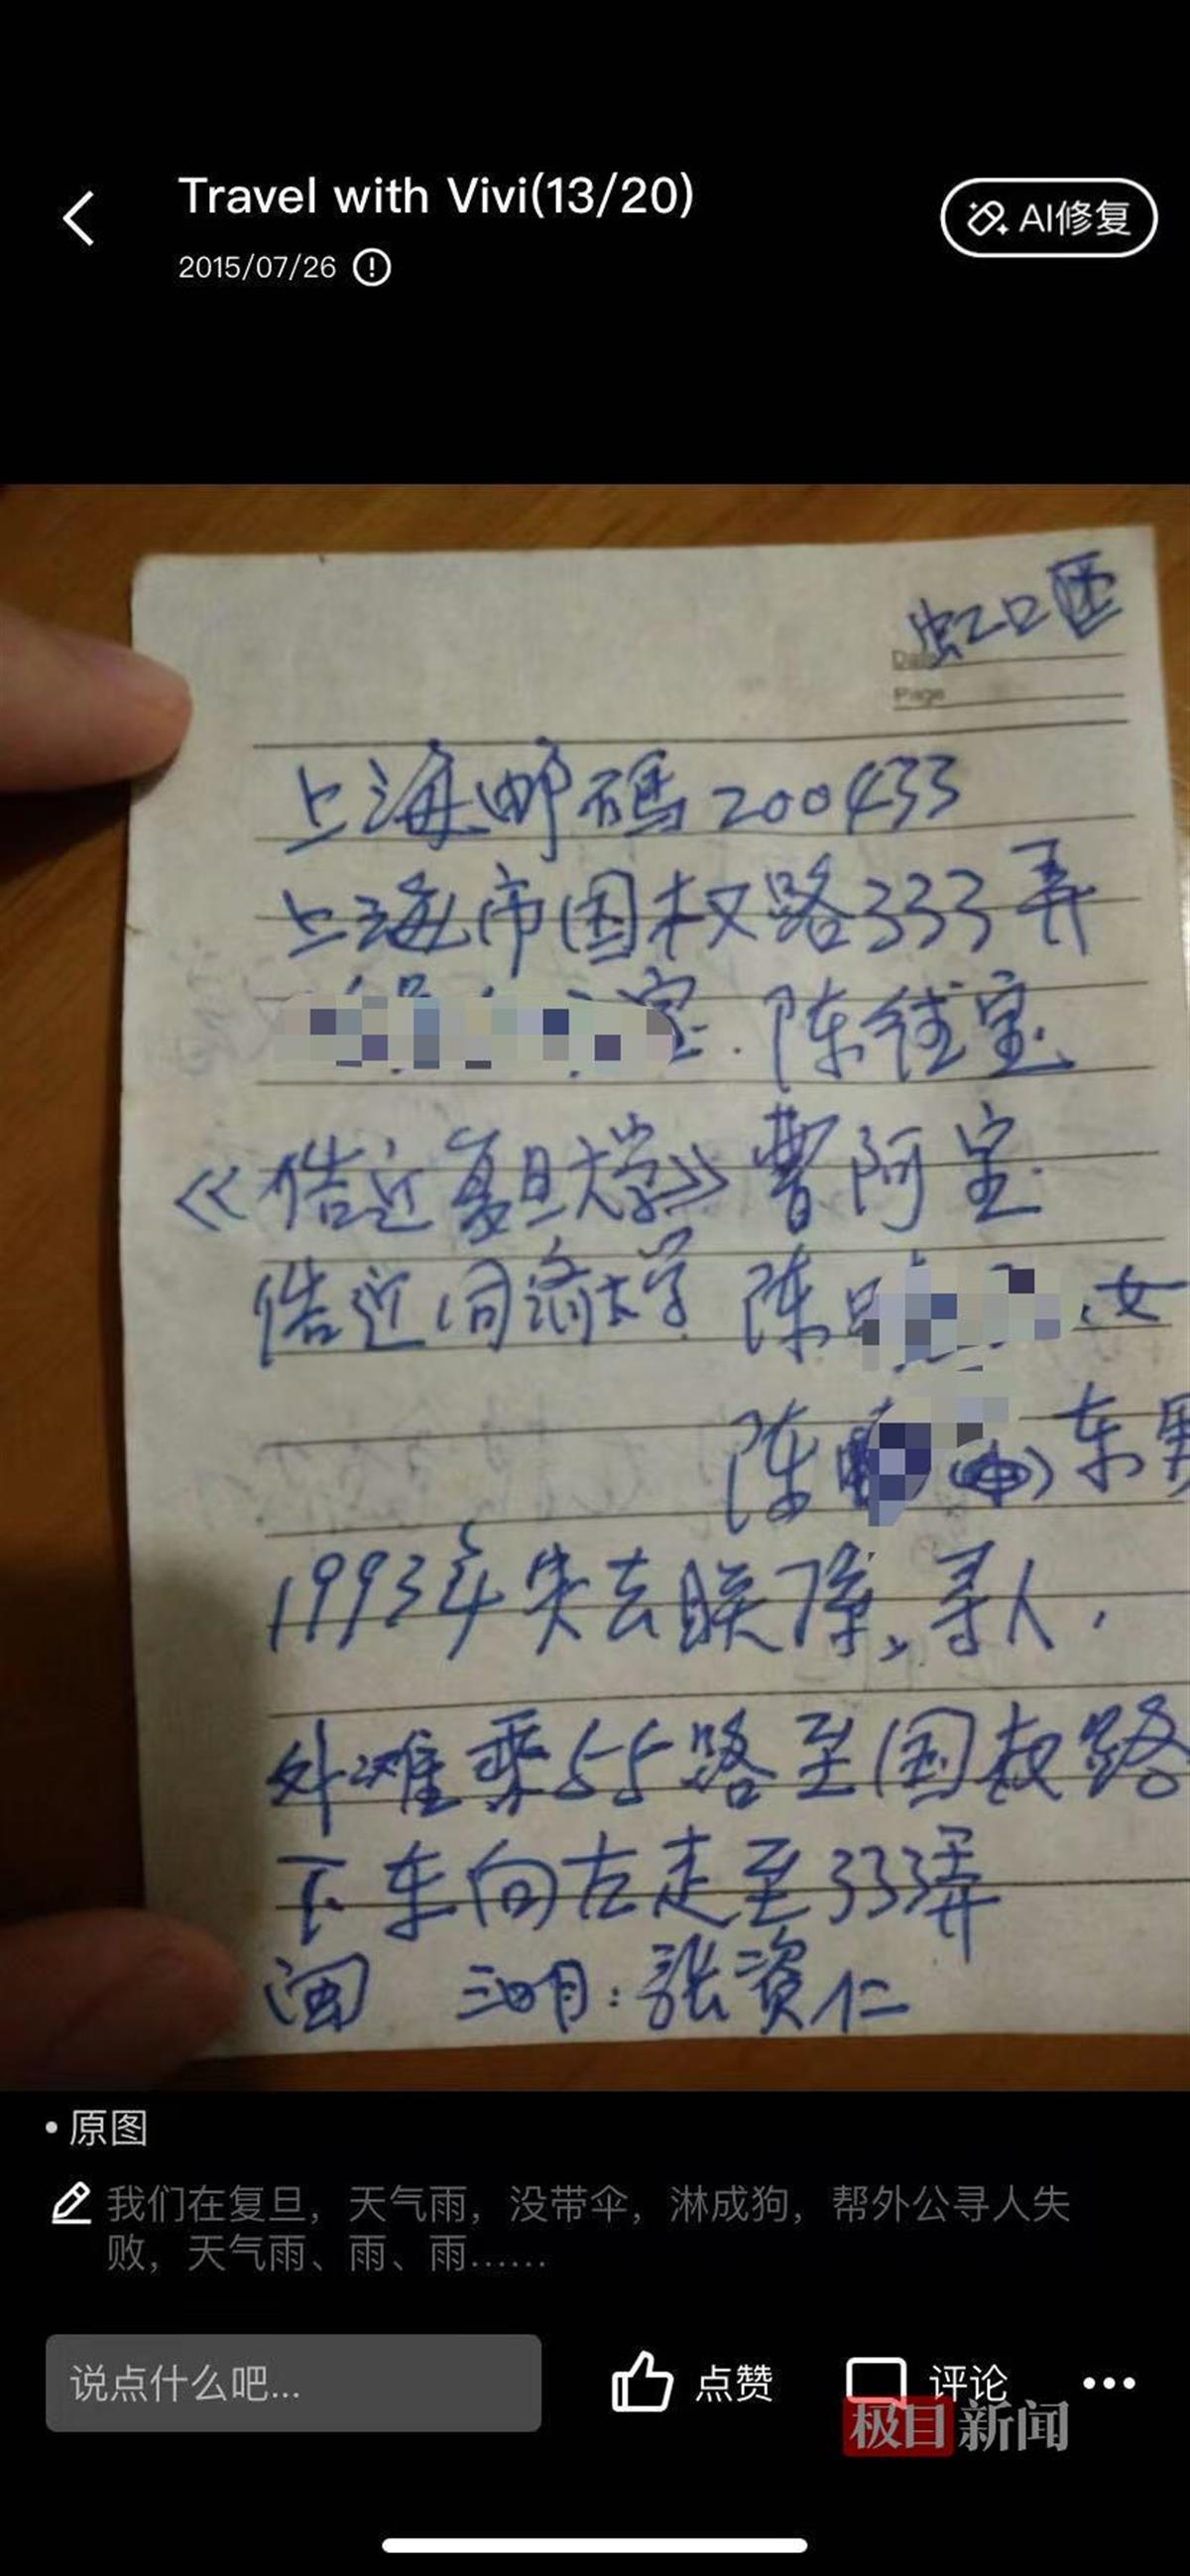 Travel with Vivi(13/20)
2015/07/26
AI修复
虹口区
Date
Page
上海邮码200433
上海市国权路333弄
宝.陈继宝
《佶近复旦大学》曹阿宝
佶近同济大学 陈 女
陈 东男
1993年失去联络,寻人,
外滩乘55路至国权路
下车向左走至333弄
闽 三明:张资仁
原图
我们在复旦，天气雨，没带伞，淋成狗，帮外公寻人失
败，天气雨、雨、雨……
说点什么吧...
点赞
评论
极目新闻